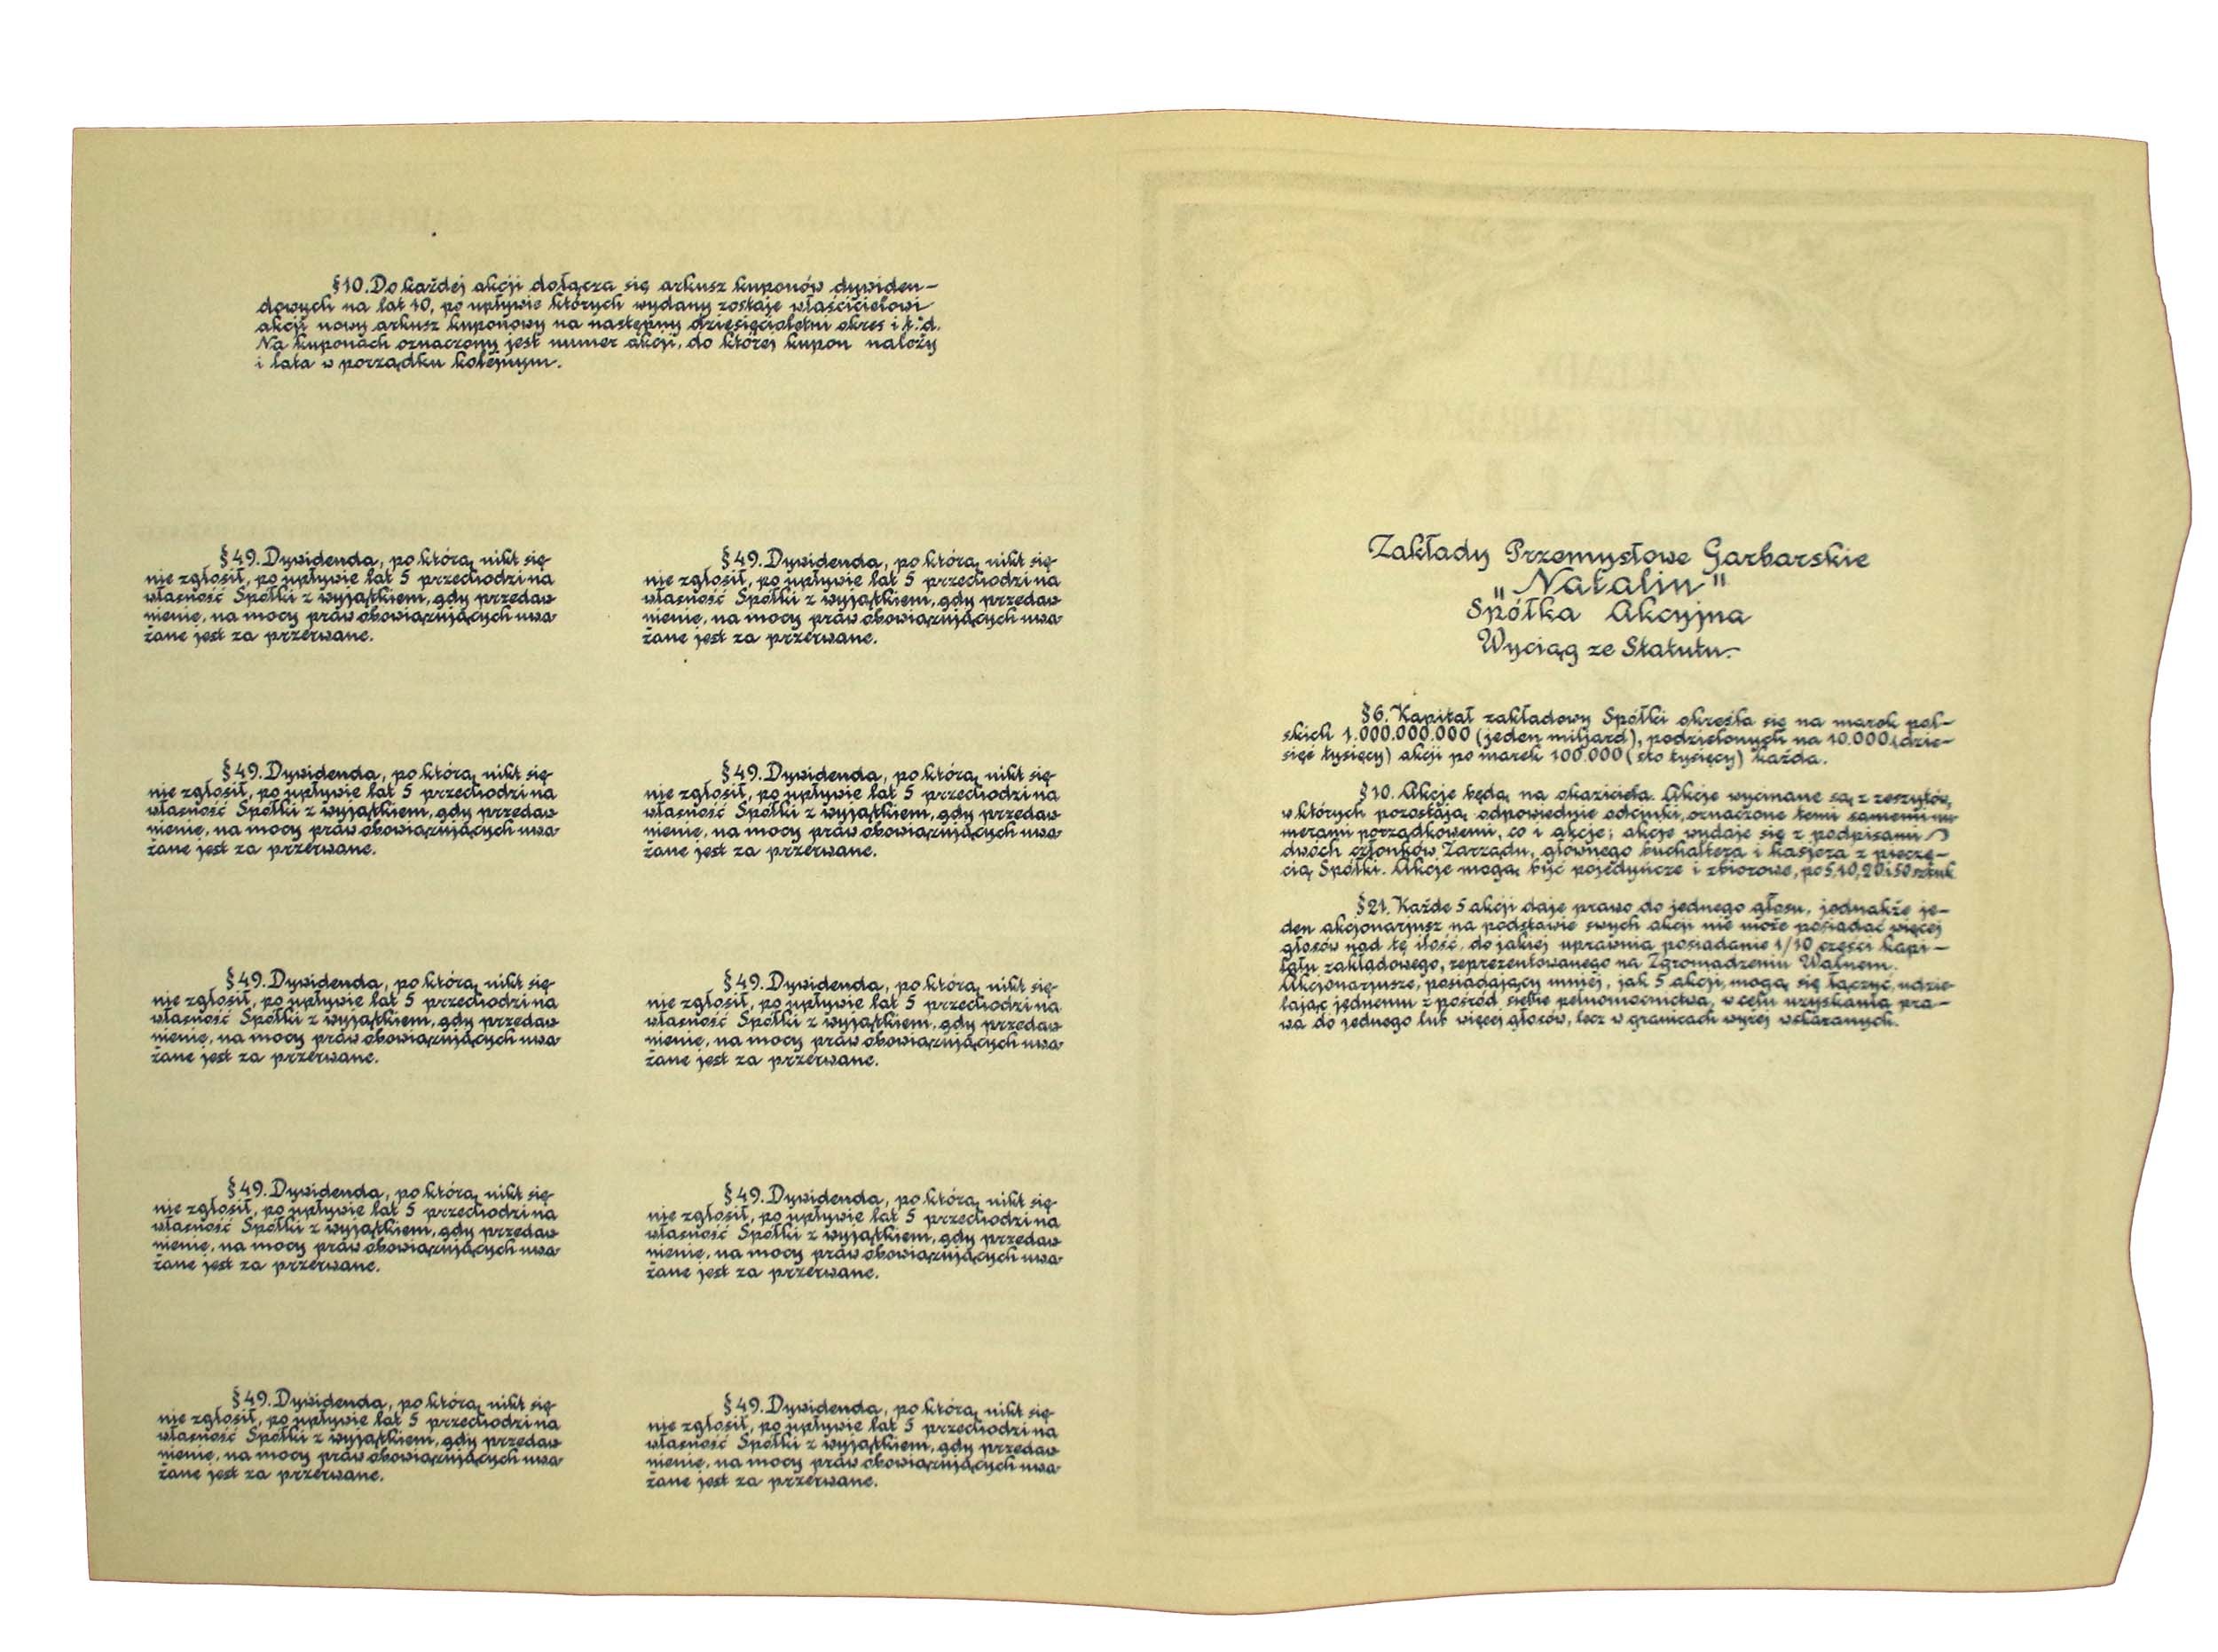 §10. Do każdej akcji dołącza się arkusz kuponów dywiden-
dowych na lat 10, po upływie których wydany zostaje właścicielowi
akcji nowy arkusz kuponowy na następny dziesięcioletni okres i t. d.
Na kuponach oznaczony jest numer akcji, do której kupon należy
i lata w porządku kolejnym.
§49. Dywidenda, po którą nikt się
nie zgłosił, po upływie lat 5 przechodzi na
własność Spółki z wyjątkiem, gdy przedaw
nienie, na mocy praw obowiązujących uwa
żane jest za przerwane.
§49. Dywidenda, po którą nikt się
nie zgłosił, po upływie lat 5 przechodzi na
własność Spółki z wyjątkiem, gdy przedaw
nienie, na mocy praw obowiązujących uwa
żane jest za przerwane.
§49. Dywidenda, po którą nikt się
nie zgłosił, po upływie lat 5 przechodzi na
własność Spółki z wyjątkiem, gdy przedaw
nienie, na mocy praw obowiązujących uwa
żane jest za przerwane.
§49. Dywidenda, po którą nikt się
nie zgłosił, po upływie lat 5 przechodzi na
własność Spółki z wyjątkiem, gdy przedaw
nienie, na mocy praw obowiązujących uwa
żane jest za przerwane.
§49. Dywidenda, po którą nikt się
nie zgłosił, po upływie lat 5 przechodzi na
własność Spółki z wyjątkiem, gdy przedaw
nienie, na mocy praw obowiązujących uwa
żane jest za przerwane.
§49. Dywidenda, po którą nikt się
nie zgłosił, po upływie lat 5 przechodzi na
własność Spółki z wyjątkiem, gdy przedaw
nienie, na mocy praw obowiązujących uwa
żane jest za przerwane.
§49. Dywidenda, po którą nikt się
nie zgłosił, po upływie lat 5 przechodzi na
własność Spółki z wyjątkiem, gdy przedaw
nienie, na mocy praw obowiązujących uwa
żane jest za przerwane.
§49. Dywidenda, po którą nikt się
nie zgłosił, po upływie lat 5 przechodzi na
własność Spółki z wyjątkiem, gdy przedaw
nienie, na mocy praw obowiązujących uwa
żane jest za przerwane.
§49. Dywidenda, po którą nikt się
nie zgłosił, po upływie lat 5 przechodzi na
własność Spółki z wyjątkiem, gdy przedaw
nienie, na mocy praw obowiązujących uwa
żane jest za przerwane.
§49. Dywidenda, po którą nikt się
nie zgłosił, po upływie lat 5 przechodzi na
własność Spółki z wyjątkiem, gdy przedaw
nienie, na mocy praw obowiązujących uwa
żane jest za przerwane.
Zakłady Przemysłowe Garbarskie
„Natalin"
Spółka Akcyjna
Wyciąg ze Statutu.
§6. Kapitał zakładowy Spółki określa się na marek pol-
skich 1.000.000.000 (jeden miljard), podzielonych na 10.000 (dzie-
sięć tysięcy) akcji po marek 100.000 (sto tysięcy) każda.
§10. Akcje będą na okaziciela. Akcje wycinane są z zeszytów,
w których pozostają odpowiednie odcinki, oznaczone temi samemi nu
merami porządkowemi, co i akcje; akcje wydaje się z podpisami
dwóch członków Zarządu, głównego buchaltera i kasjera z pieczę-
cią Spółki. Akcje mogą być pojedyńcze i zbiorowe, po 5, 10, 20 i 50 sztuk
§21. Każde 5 akcji daje prawo do jednego głosu, jednakże je-
den akcjonarjusz na podstawie swych akcji nie może posiadać więcej
głosów nad tę ilość, do jakiej uprawnia posiadanie 1/10 części kapi-
tału zakładowego, reprezentowanego na Zgromadzeniu Walnem.
Akcjonarjusze, posiadający mniej, jak 5 akcji, mogą się łączyć, udzie
lając jednemu z pośród siebie pełnomocnictwa, w celu uzyskania pra-
wa do jednego lub więcej głosów, lecz w granicach wyżej wskazanych.